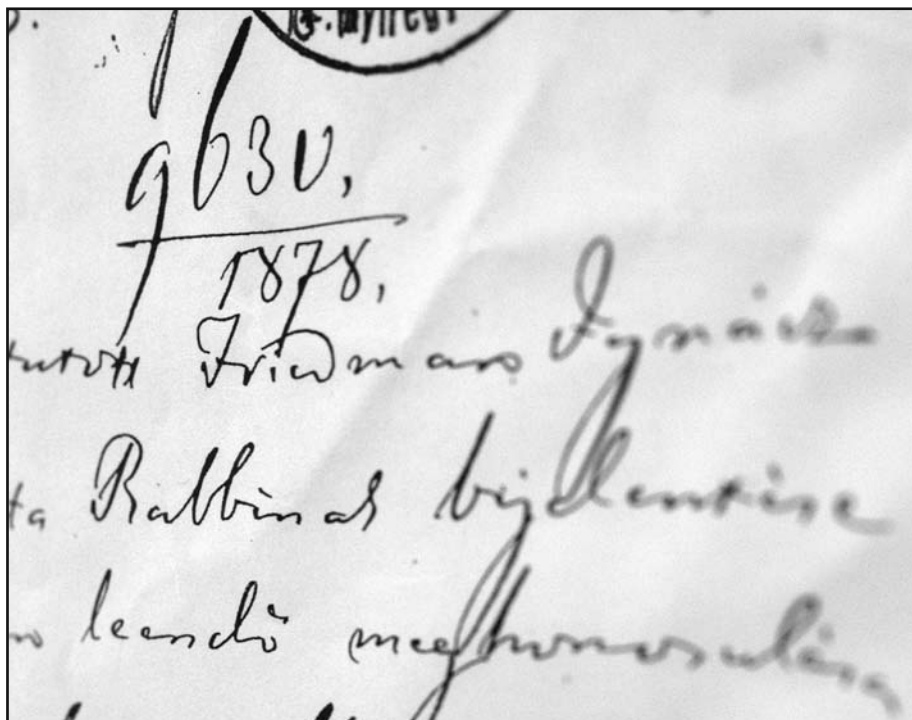 9630,
1878,
Friedman Ignácz
Rabbinak bejelentése
leendő meghonosulása